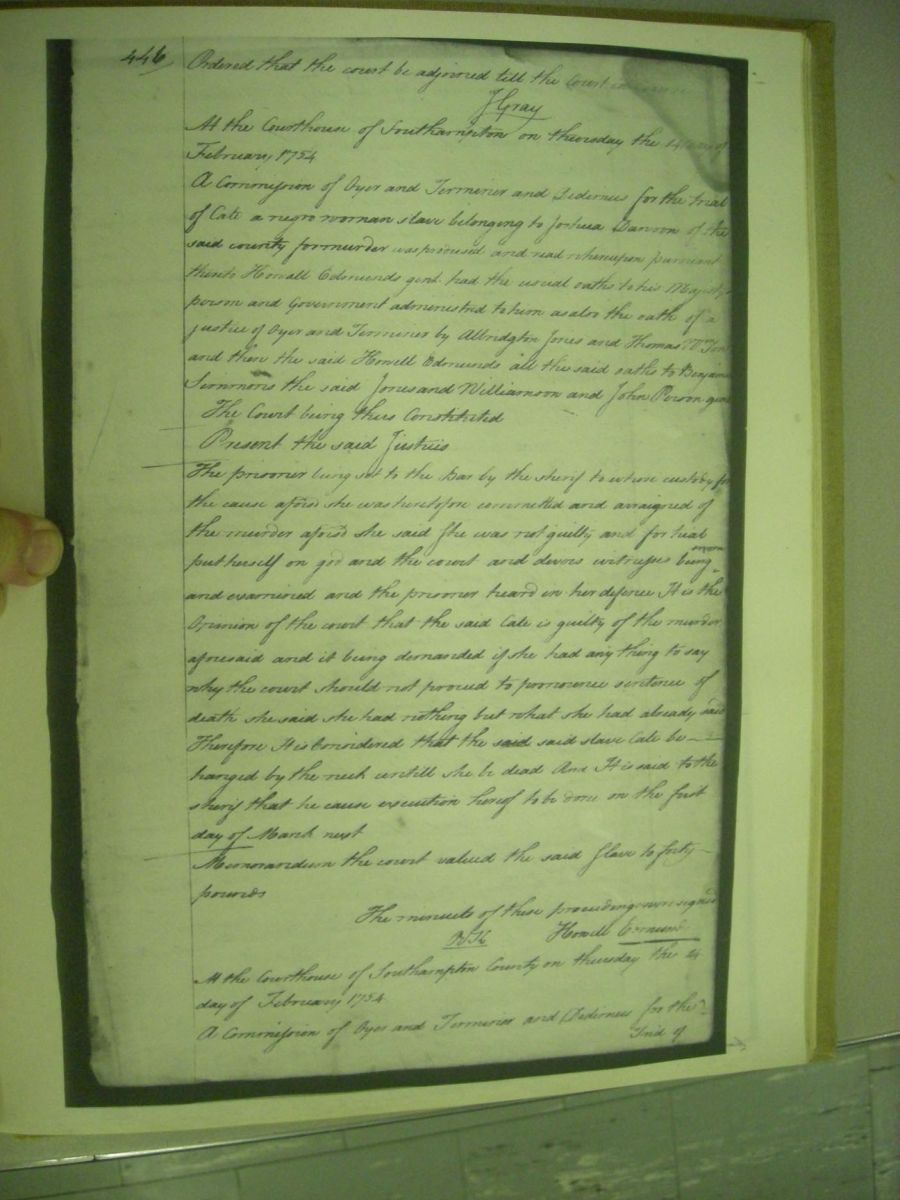 446
Ordered that the court be adjorned till the Court in
J Gray
At the Courthouse of Southampton on thursday the 14 day of
February 1754
A Commission of Oyer and Terminer and Dedimus for the trial
of Cate a negro woman slave belonging to Joshua of the
said county for murder was produced and read whereupon pursuant
thereto Howell Edmunds gent had the usual oaths to his Majestys
person and Government administred to him as also the oath of a
justice of Oyer and Terminer by Albridgton Jones and Thomas
and then the said Howell Edmunds all the said oaths to Benjamin
Simmons the said Jones and Williamson and John Person gent
The Court being thus Constituted
Present the said Justices
The prisoner being set to the Bar by the sherif to whom custody for
the cause aforsd she was heretofore committed and arraigned of
the murder aforsd she said she was not guilty and for trial
put herself on god and the court and divers witnesses being sworn
and examined and the prisoner heard in her defence It is the
Opinion of the court that the said Cate is guilty of the murder
aforesaid and it being demanded if she had any thing to say
why the court should not proceed to pronounce sentence of
death she said she had nothing but what she had already said
Therefore It is Considered that the said said slave Cate be
hanged by the neck untill she be dead And It is said to the
sherif that he cause execution hereof to be done on the first
day of March next
Memorandum the court valued the said slave to forty
pounds
The minuits of these proceedings were signed
Howell Edmunds
At the Courthouse of Southampton County on thursday the 14
day of February 1754
A Commission of Oyer and Terminer and Dedimus for the
Trial of